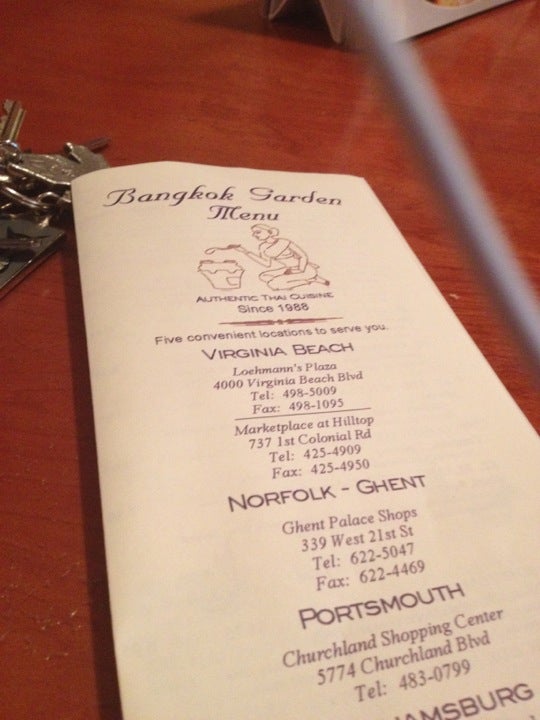 Bangkok Garden
Menu
AUTHENTIC THAI CUISINE
Since 1988
Five convenient locations to serve you.
VIRGINIA BEACH
Loehmann's Plaza
4000 Virginia Beach Blvd
Tel: 498-5009
Fax: 498-1095
Marketplace at Hilltop
737 1st Colonial Rd
Tel: 425-4909
Fax: 425-4950
NORFOLK - GHENT
Ghent Palace Shops
339 West 21st St
Tel: 622-5047
Fax: 622-4469
PORTSMOUTH
Churchland Shopping Center
5774 Churchland Blvd
Tel: 483-0799
AMSBURG